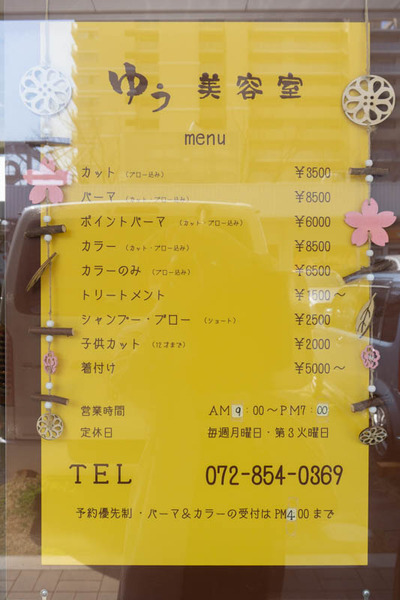 ゆぅ 美容室
menu
カット (ブロー込み) ¥3500
パーマ (カット・ブロー込み) ¥8500
ポイントパーマ (カット・ブロー込み) ¥6000
カラー (カット・ブロー込み) ¥8500
カラーのみ (ブロー込み) ¥6500
トリートメント ¥1500～
シャンプー・ブロー (ショート) ¥2500
子供カット (12才まで) ¥2000
着付け ¥5000～
営業時間 AM9:00～PM7:00
定休日 毎週月曜日・第3火曜日
TEL 072-854-0369
予約優先制・パーマ&カラーの受付はPM4:00まで